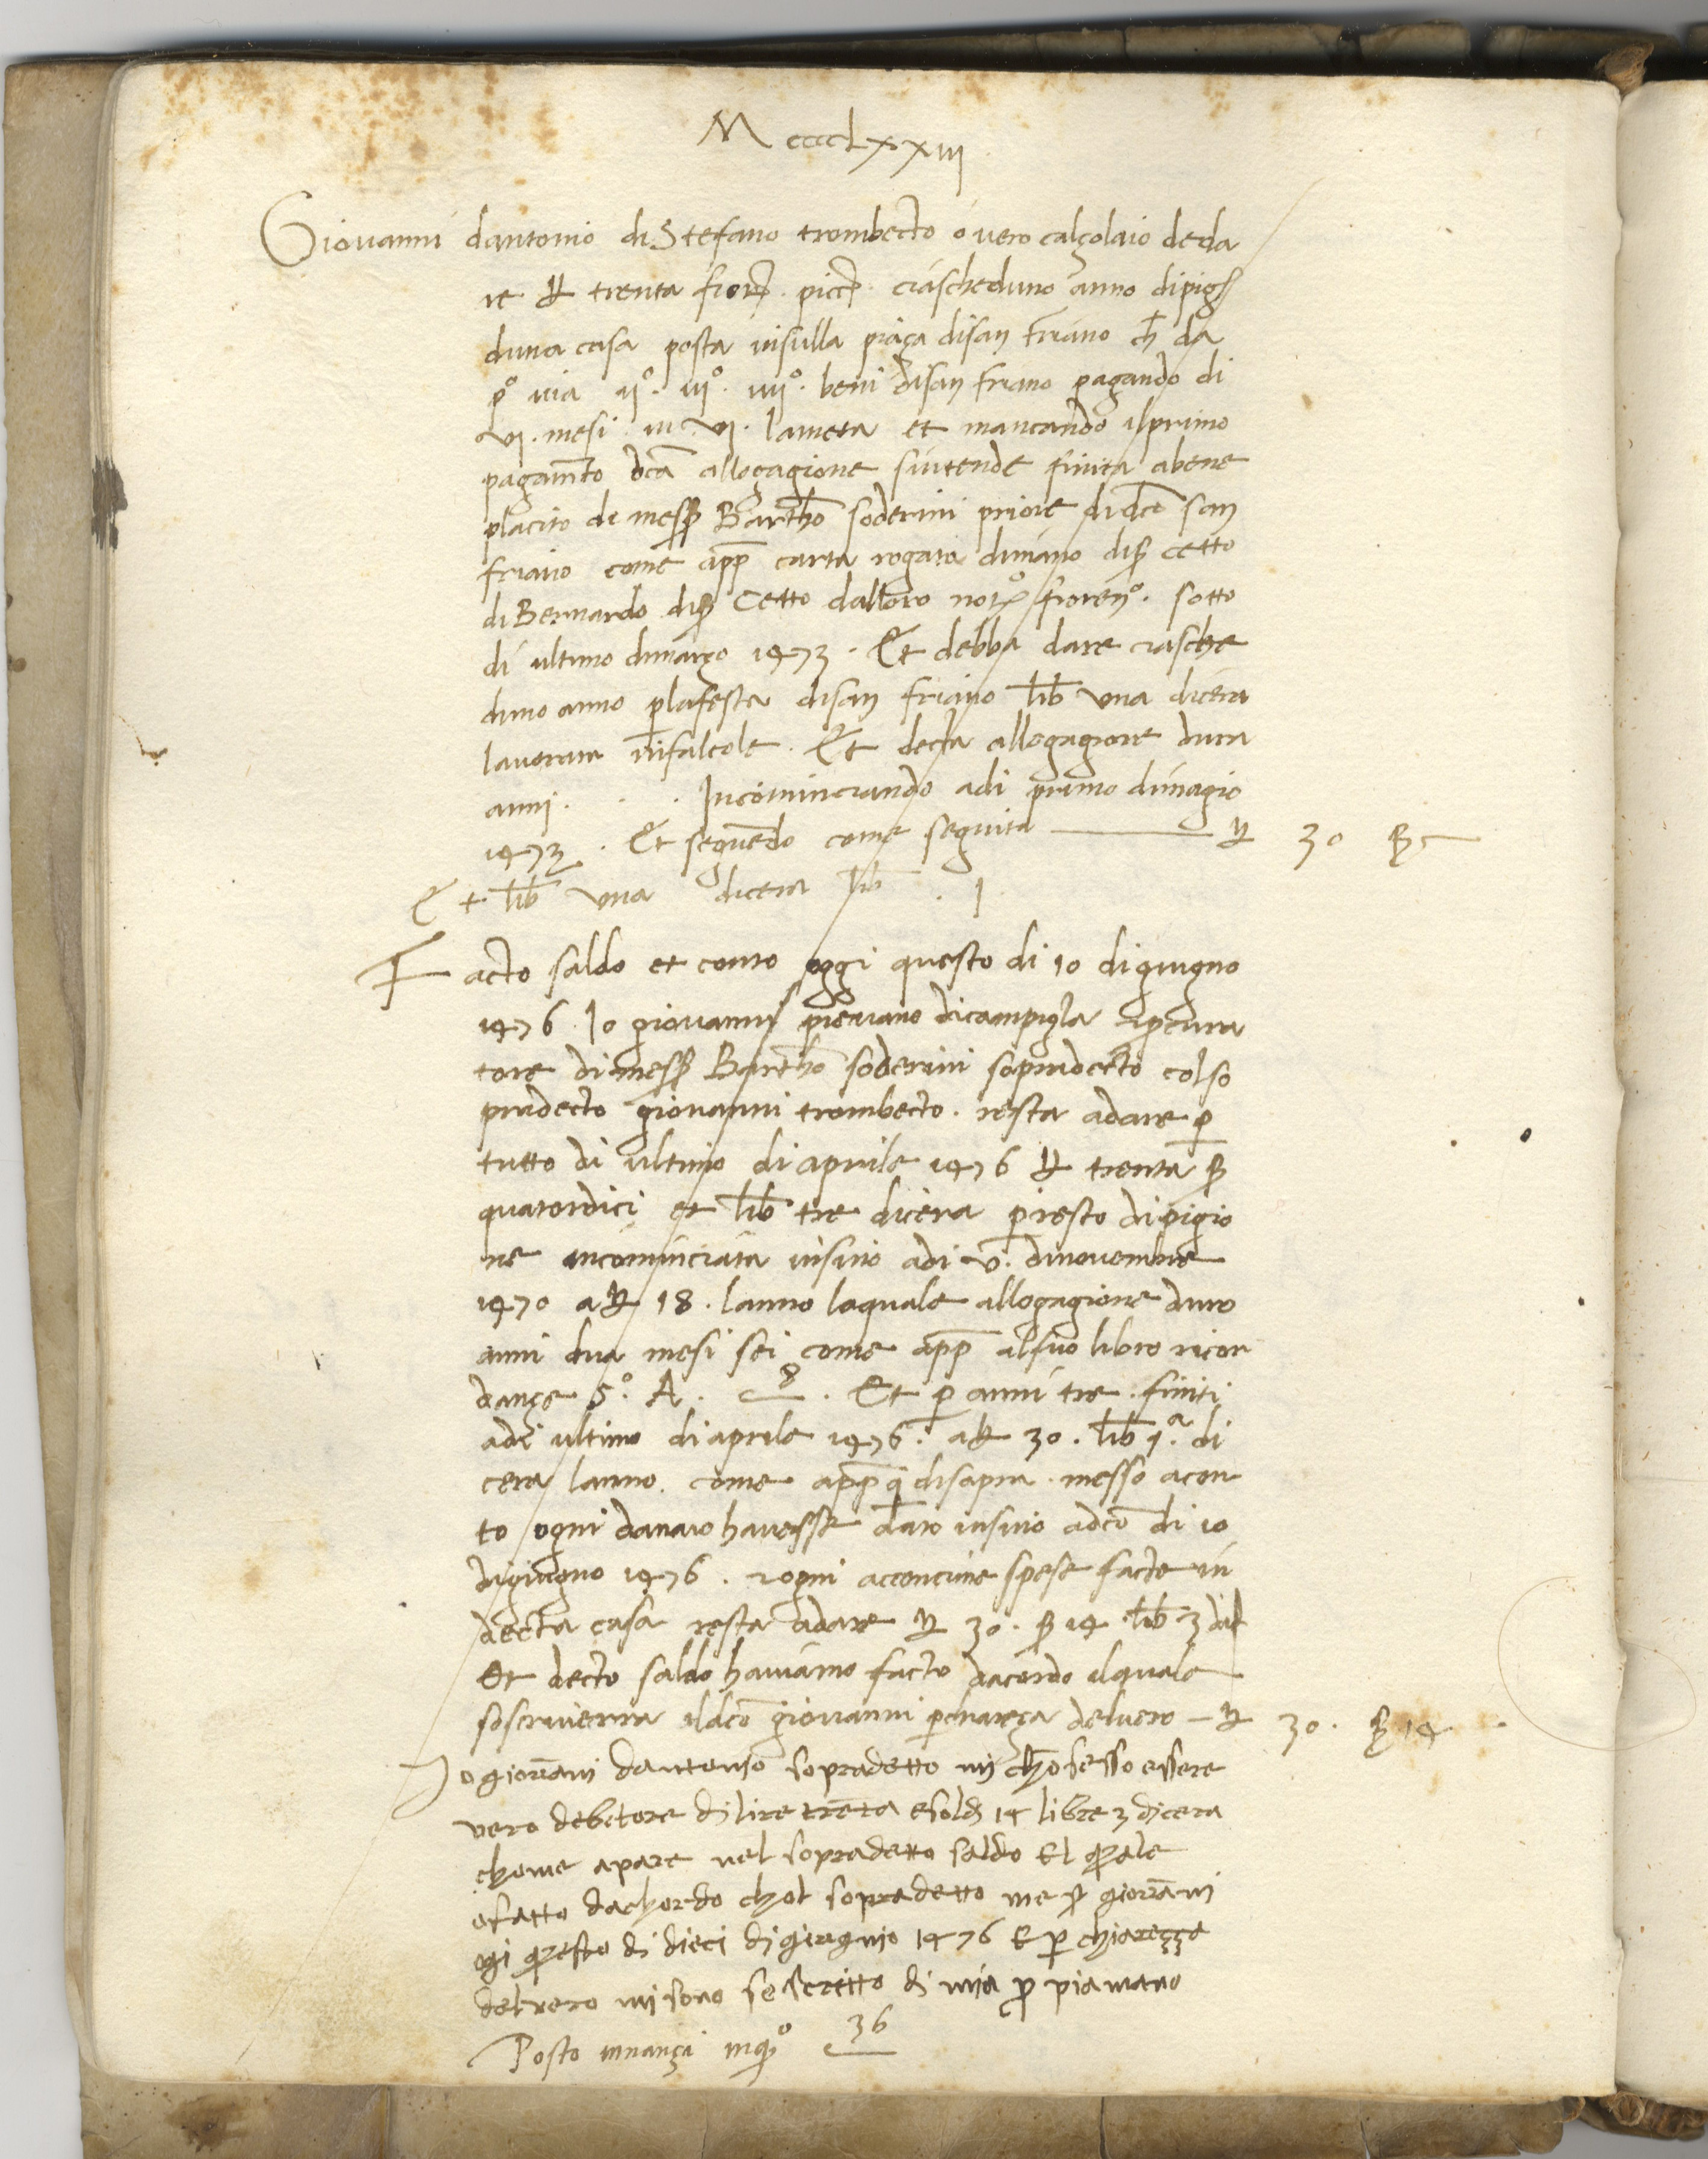 MccccLxxiii
Giovanni dantonio di Stefano trombecto o vero calçolaio de da
re ₶ trenta fior. picc. ciascheduno anno di pig.
duna casa posta insulla piaça di san friano ch da
p.o via ii.o iii.o iiii.o beni di san friano pagando di
vi. mesi in vi. la meta et mancando il primo
pagamto dca allogagione sintende finita a bene
placito di messer Bartho soderini priore di dco san
friano come app carta rogata di mano di ser Cetto
di Bernardo di ser Cetto notro fioreno. sotto
di ultimo di março 1473. Et debba dare ciasche
duno anno p la festa di san friano lib una di cera
lavorata in falcole. Et decta allogagione dura
anni . . . Incominciando a di primo di magio
1473. Et sequedo come seguita — ₶ 30 ß —
Et lib una di cera lib . 1
Facto saldo et conto oggi questo di 10 di giugno
1476. Io giovanni piovano di campigla procura
tore di messer Bartho soderini sopradecto col so
pradecto giovanni trombecto. resta a dare p
tutto di ultimo di aprile 1476 ₶ trenta ß
quatordici et lib tre di cera p resto di pigio
ne incominciata insino a di v. di novembre
1470 a ₶ 18. lanno la quale allogagione duro
anni dua mesi sei come app al suo libro ricor
dançe s.o A. 8. Et p anni tre finiti
a di ultimo di aprile 1476. a ₶ 30. lib 1.a di
cera lanno. come app q di sopra. messo a con
to ogni danaro havesse dato insino a dco di 10
di giugno 1476. z ogni acconcime spese facte in
decta casa resta a dare ₶ 30. ß 14 lib 3 di
Et decto saldo haviamo facto dacordo il quale
soscriverra il dco giovanni p chiareça del vero — ₶ 30. ß 14
Io giovani dantonio sopradetto mi chofesso essere
vero debitore di lire trenta e soldi 14 libre 3 di cera
chome apare nel sopradetto saldo el quale
o fatto dachordo chol sopradetto giovani
ogi questo di dieci di giugnio 1476 e p chiarezza
del vero mi sono soscritto di mia propia mano
Posto innançi in qo 36